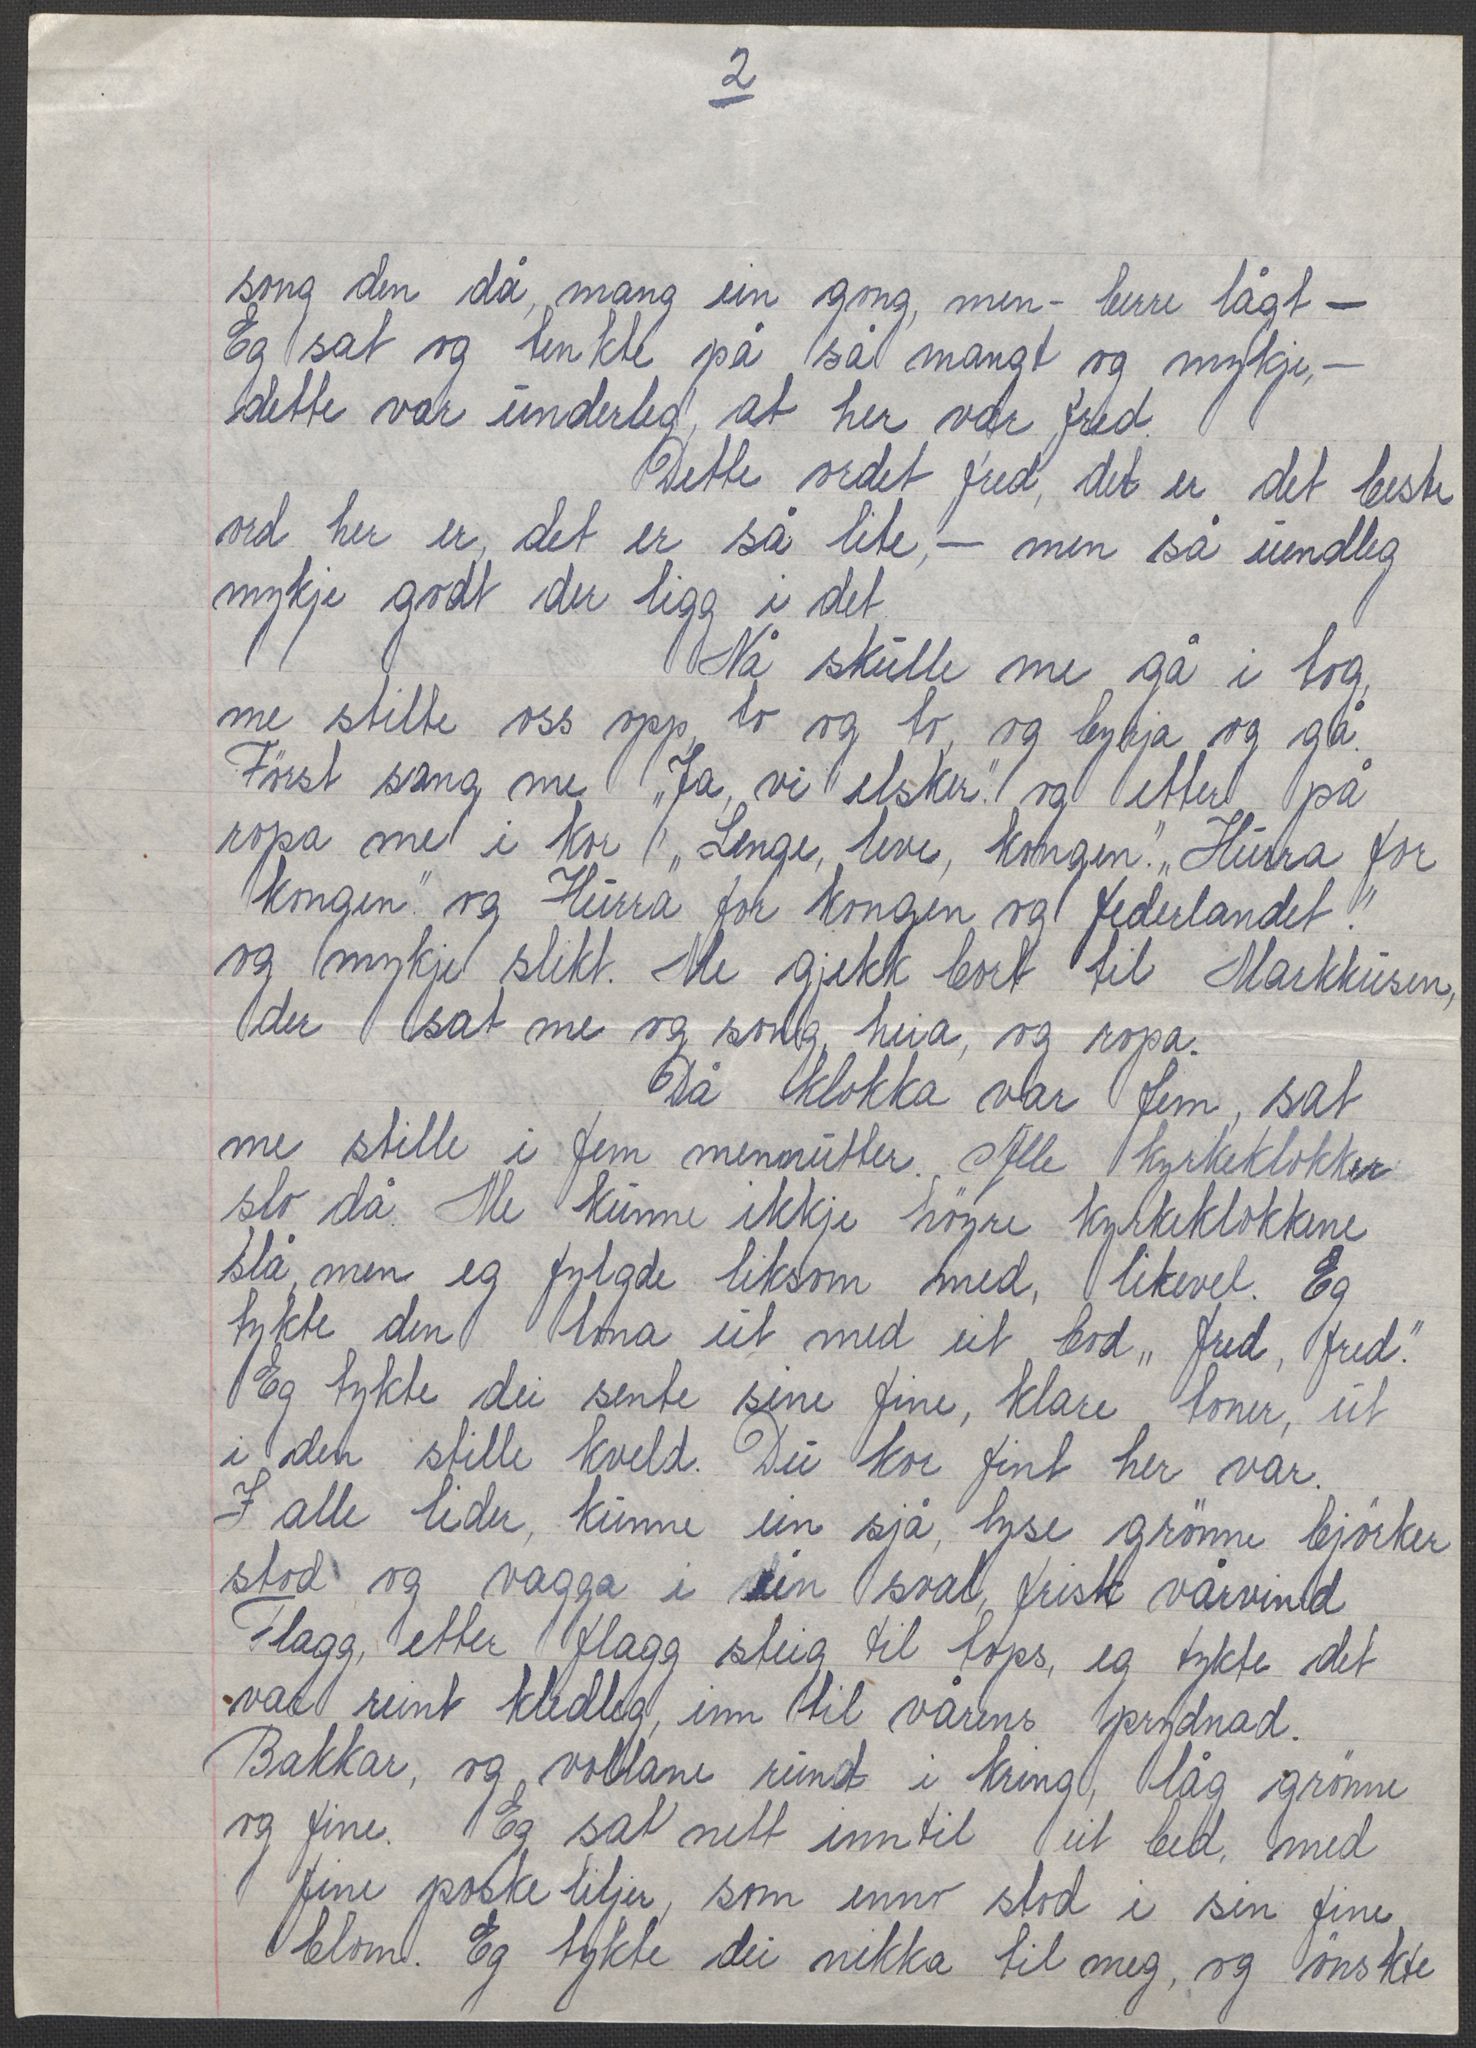 2
song den då, mang ein gong, men - berre lågt —
Eg sat og tenkte på så mangt og mykje, —
dette var underleg, at her var fred.
Dette ordet fred, det er det beste
ord her er, det er så lite, — men så uendleg
mykje godt der ligg i det.
Nå skulle me gå i tog,
me stilte oss opp, to og to, og byrja og gå.
Först sang me „Ja, vi elsker." og etter på
ropa me i kor „Lenge, leve, kongen". „Hurra for
kongen". og Hurra for kongen og federlandet."
og mykje slikt. Me gjekk bort til Markkusen,
der sat me og song, heia, og ropa.
Då klokka var fem, sat
me stille i fem menutter. Alle kyrkeklokker
slo då. Me kunne ikkje höyre kyrkeklokkene
slå, men eg fylgde liksom med, likevel. Eg
tykte den tona ut med eit bod „fred, fred."
Eg tykte dei sente sine fine, klare toner, ut
i den stille kveld. Du kor fint her var.
I alle lider, kunne ein sjå, lyse grönne björker
stod og vagga i ein sval, frisk vårvind
Flagg, etter flagg steig til tops, eg tykte det
var reint kledleg, inn til vårens prydnad.
Bakkar, og vollane rundt i kring, låg grönne
og fine. Eg sat nett inntil eit bed, med
fine poske liljer, som enno stod i sin fine
blom. Eg tykte dei nikka til meg, og önskte